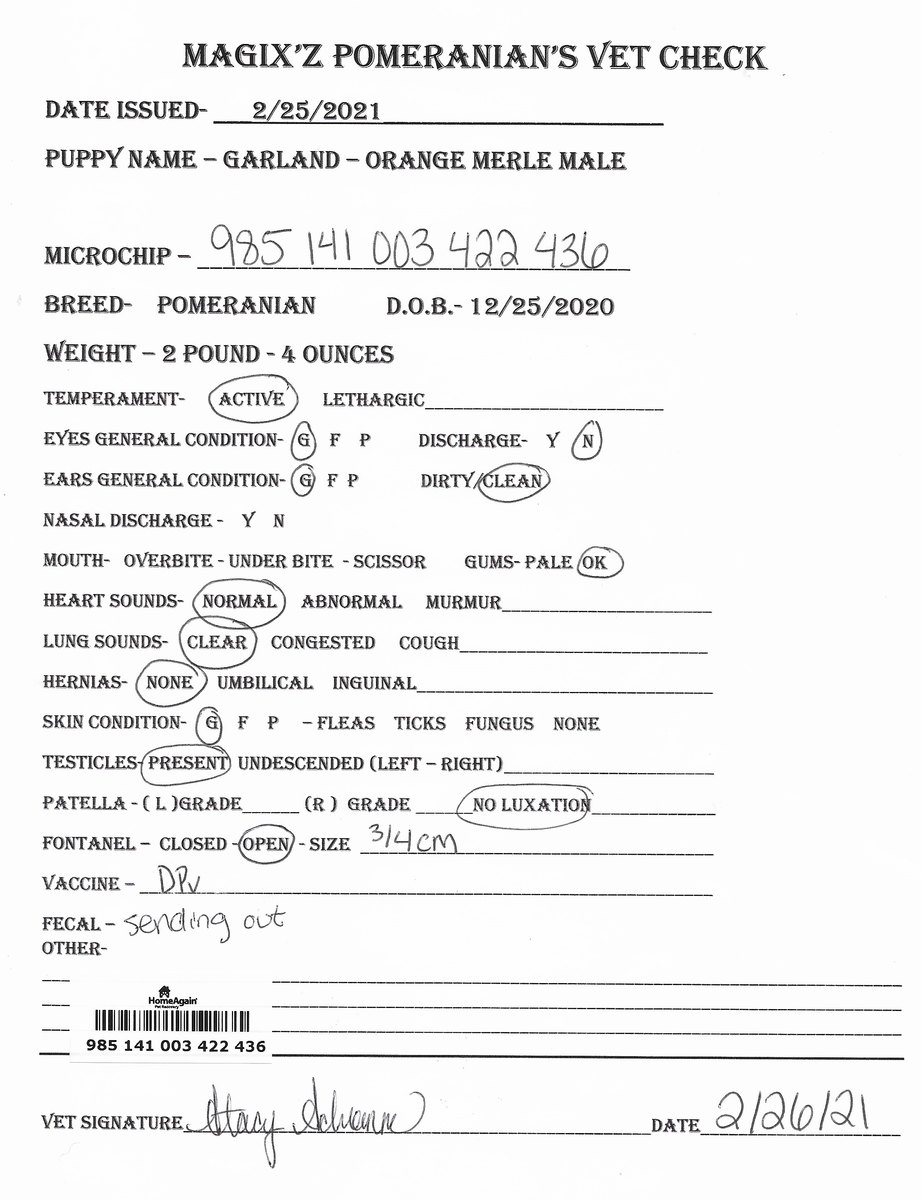 MAGIX'Z POMERANIAN'S VET CHECK
DATE ISSUED- 2/25/2021
PUPPY NAME – GARLAND – ORANGE MERLE MALE
MICROCHIP – 985 141 003 422 436
BREED- POMERANIAN D.O.B.- 12/25/2020
WEIGHT – 2 POUND - 4 OUNCES
TEMPERAMENT- ACTIVE LETHARGIC
EYES GENERAL CONDITION- G F P DISCHARGE- Y N
EARS GENERAL CONDITION- G F P DIRTY/CLEAN
NASAL DISCHARGE - Y N
MOUTH- OVERBITE - UNDER BITE - SCISSOR GUMS- PALE OK
HEART SOUNDS- NORMAL ABNORMAL MURMUR
LUNG SOUNDS- CLEAR CONGESTED COUGH
HERNIAS- NONE UMBILICAL INGUINAL
SKIN CONDITION- G F P – FLEAS TICKS FUNGUS NONE
TESTICLES- PRESENT UNDESCENDED (LEFT – RIGHT)
PATELLA - ( L )GRADE (R ) GRADE NO LUXATION
FONTANEL – CLOSED - OPEN - SIZE 3/4 cm
VACCINE – DPv
FECAL – sending out
OTHER-
HomeAgain
Pet Recovery
985 141 003 422 436
VET SIGNATURE Stacy DATE 2/26/21